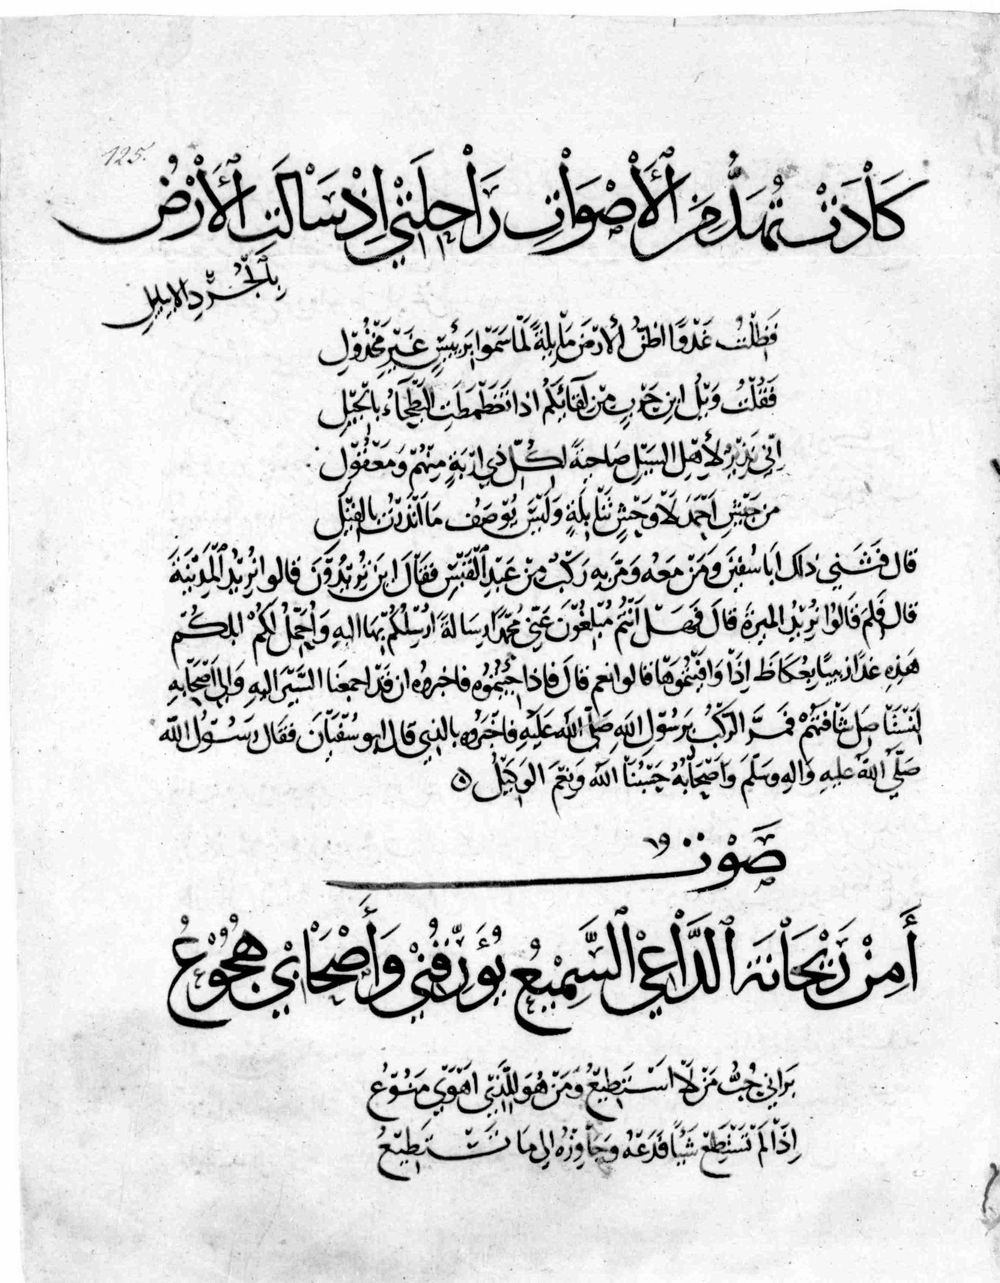 125.
كَادَتْ تُهَدُّ مِنَ ٱلْأَصْوَاتِ رَاحِلَتِي إِذْ سَالَتِ ٱلْأَرْضُ
بِٱلْجُرْدِ الابابيلِ
فَظَلْتُ عَدْوًا اظُنُّ الأرْضَ مَايِلَةً لَمَّا سَمَوْا بِرَئِيسٍ غَيْرِ مَخْذُوْلِ
فَقُلْتُ وَيْلُ ابْنِ حَرْبٍ مِنْ لِقَائِكُمُ اذا تَغَطْمَطَتِ البَطْحَاءُ بالْجِيْلِ
اِنّي نَذِيْرٌ لأِهْلِ السَيْلِ ضَاحِيَةً لِكُلّ ذي إِرْبَةٍ مِنْهُمْ وَمَعْقُوْلِ
مِنْ جَيْشِ اَحْمَدَ لَا وَخْشٍ تَنَابِلَةٍ وَلَيْسَ يُوْصَفُ مَا اَنْذَرْتُ بِالْقِيْلِ
قال فَثَنى ذلك اَبَا سُفْيٰنَ وَمَنْ مَعَهُ وَمَرَّ بِهِ رَكْبٌ مِنْ عَبْدِ ٱلْقَيْسِ فَقَالَ اَيْنَ تُرِيْدُوْنَ قالوا نُرِيْدُ الْمَدِيْنَةَ
قال فَلِمَ قَالوُا نُرِيْدُ المِيْرَةَ قالَ فَهَلْ اَنْتُمْ مُبَلِّغُوْنَ عَنّي مُحَمَّدًا رِسَالَةً اُرْسِلُكُمْ بِهَا اليهِ وَاُحَمِّلُ لَكُمْ ابلكُمْ
هَذِهِ غَدًا زبيبًا بِعُكَاظَ إِذَا وَافَيْتُمُوْهَا قالوا نعم قالَ فَاِذَا جِئْتُمُوْهُ فاخبروُه ان قَد اجمعنا السَّيْرَ اليهِ وَاِلى اَصْحَابِهِ
لِنَسْتَاصِلَ شَافَتَهُمْ فَمَرَّ الرّكْبُ بِرَسُوْلِ اللهِ صَلّي اللهُ عَلَيْهِ فاَخْبَروُه بِالّذي قالَ ابو سُفْيَانَ فقَال رَسُوْلُ اللهِ
صَلّي اللهُ عليهِ وَالِهِ وسَلّمَ وَاَصْحَابُهُ حَسْبُنَا اللهُ وَنِعْمَ الوَكِيْلُ ه
صَوْتٌ
أَمِنْ رَيْحَانَةَ ٱلدَّاعِي ٱلسَّمِيعُ يُؤَرِّقُنِي وَأَصْحَابِي هُجُوْعُ
بَرَانِي حُبُّ مَنْ لَا اَسْتَطِيْعُ وَمَنْ هُوَ لِلَّذِيْ اَهْوَي مَنُوْعُ
إِذَا لَمْ تَسْتَطِعْ شَيْئًا فَدَعْهُ وَجَاوِزْهُ إِلي مَا تَسْتَطِيْعُ